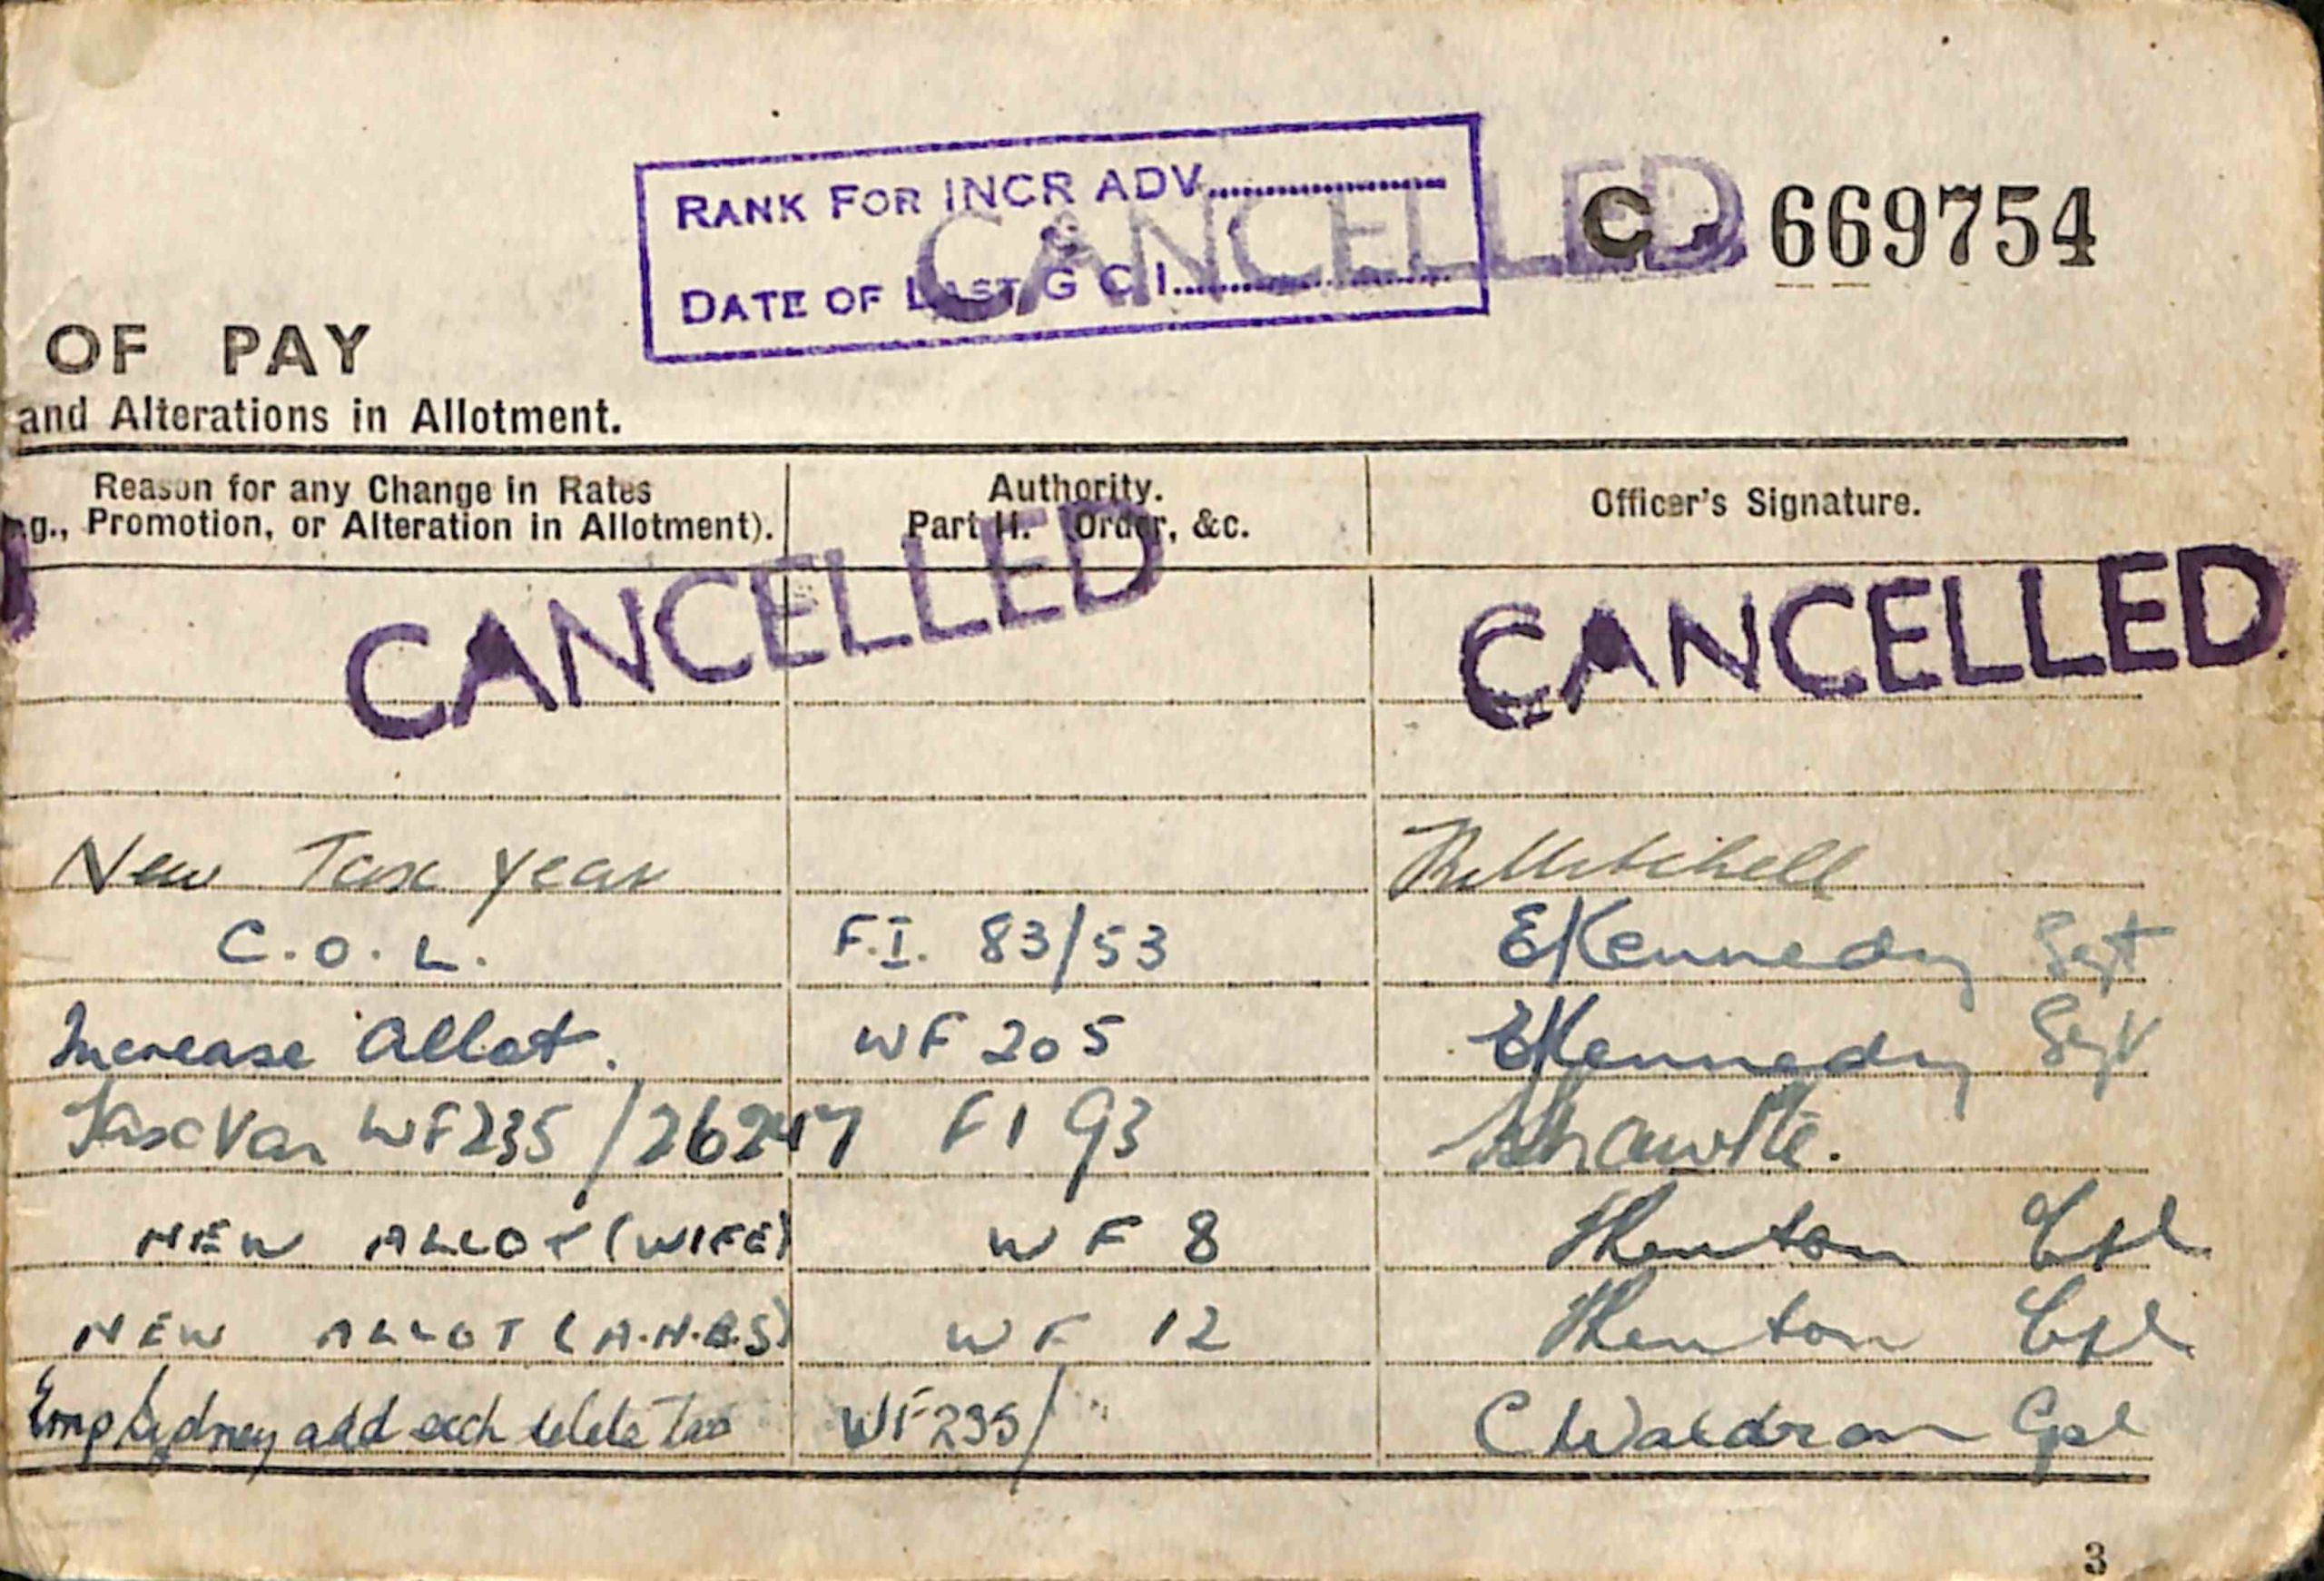 RANK FOR INCR ADV
CANCELLED
C 669754
DATE OF LAST G C I
OF PAY
and Alterations in Allotment.
Reason for any Change in Rates
g., Promotion, or Alteration in Allotment).
Authority.
Part II. Order, &c.
Officer's Signature.
CANCELLED
CANCELLED
New Tax year Mitchell
C.O.L. F.I. 83/53 EKennedy Sgt
Increase Allot. WF 205 EKennedy Sgt
Tax Var WF235 / F1 93
NEW ALLOT (WIFE) WF 8 Cpl
NEW ALLOT (A.H.B.S) WF 12 Cpl
Emp Sydney add each delete Tax WF235/ C Waldron Cpl
3